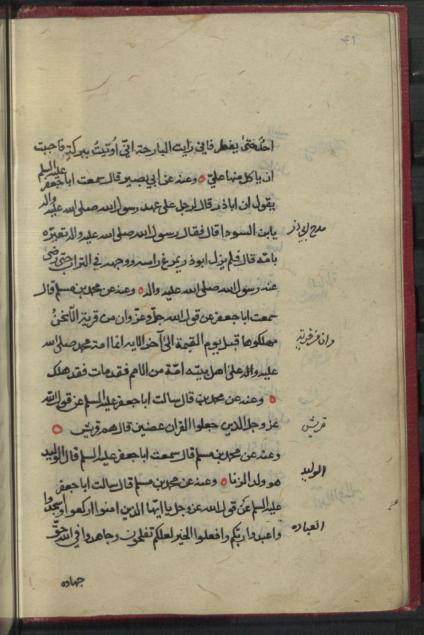 ٤١
احد حتى يفطر فاني رايت البارحة اني اُوتيتُ ببركة فاحببت
ان ياكل منها علي وعنه عن ابي بصير قال سمعت ابا جعفر عليه السلم
يقول ان اباذر قال لرجل على عهد رسول الله صلى الله عليه واله
يابن السوداء قال فقال رسول الله صلى الله عليه واله تعيره
مدح ابي ذر
بامه قال فلم يزل ابوذر يمرغ راسه ووجهه في التراب حتى رضى
عنه رسول الله صلى الله عليه واله وعنه عن محمد بن مسلم قال
سمعت ابا جعفر عن قول الله جل وعز وان من قرية الا نحنُ
مهلكوها قبل يوم القيمة الى آخر الاية انما امة محمد صلى الله
وان من قرية
عليه واله وعلى اهل بيته امّة من الامم فقد مات فقد هلك
وعنه عن محمد بن قال سالت ابا جعفر عليه السلم عن قول الله
عز وجل الذين جعلوا القران عضين قال هم قريش
قريش
وعنه عن محمد بن مسلم قال سمعت ابا جعفر عليه السلم قال الوليد
الوليد
هو ولد الزنا وعنه عن محمد بن مسلم قال سالت ابا جعفر
عليه السلم عن قول الله عز وجل يا ايها الذين امنوا اركعوا واسجدوا
العباده
واعبدوا ربكم وافعلوا الخير لعلكم تفلحون وجاهدوا في الله حق
جهاده